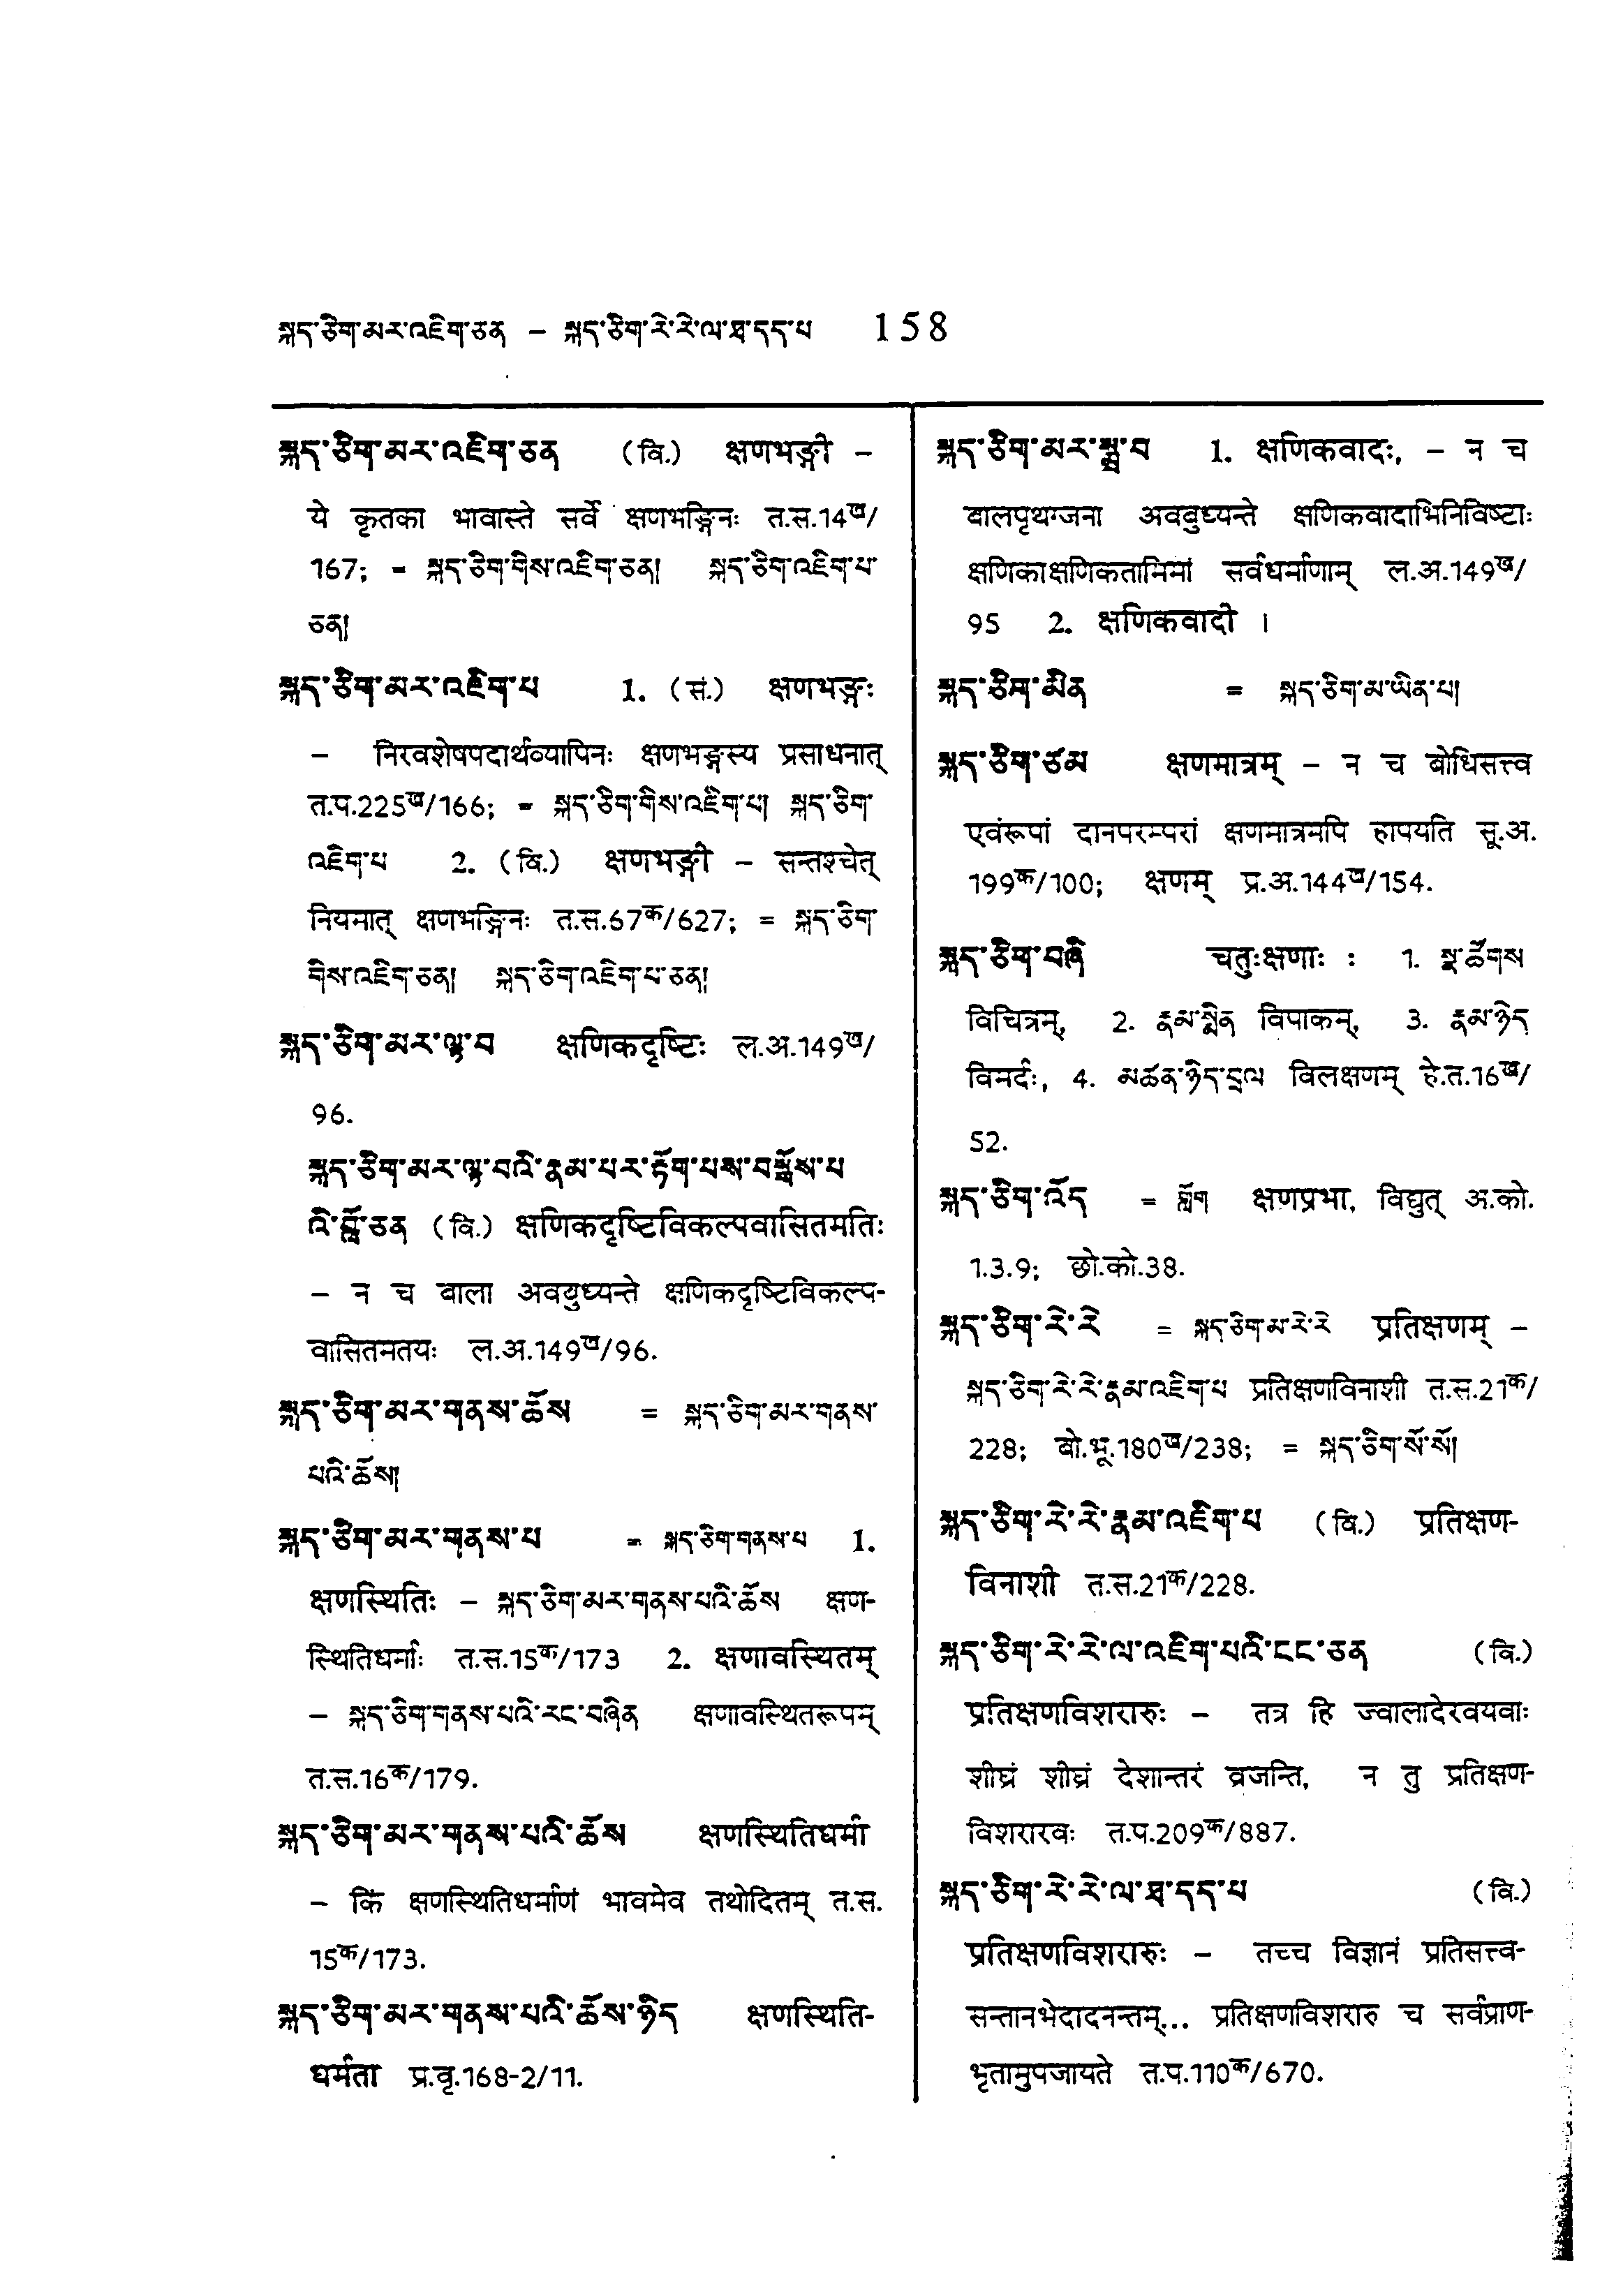 སྐད་ཅིག་མར་འཇིག་ཅན – སྐད་ཅིག་རེ་རེ་ལ་ཐ་དད་པ 158
སྐད་ཅིག་མར་འཇིག་ཅན (वि.) क्षणभङ्गी –
ये कृतका भावास्ते सर्वे क्षणभङ्गिनः त.स.14ख/
167; = སྐད་ཅིག་གིས་འཇིག་ཅན། སྐད་ཅིག་འཇིག་པ་
ཅན།
སྐད་ཅིག་མར་འཇིག་པ 1. (सं.) क्षणभङ्गः
– निरवशेषपदार्थव्यापिनः क्षणभङ्गस्य प्रसाधनात्
त.प.225ख/166; = སྐད་ཅིག་གིས་འཇིག་པ། སྐད་ཅིག་
འཇིག་པ 2. (वि.) क्षणभङ्गी – सन्तश्चेत्
नियमात् क्षणभङ्गिनः त.स.67क/627; = སྐད་ཅིག་
གིས་འཇིག་ཅན། སྐད་ཅིག་འཇིག་པ་ཅན།
སྐད་ཅིག་མར་ལྟ་བ क्षणिकदृष्टिः ल.अ.149ख/
96.
སྐད་ཅིག་མར་ལྟ་བའི་རྣམ་པར་རྟོག་པས་བསྒོས་པ
འི་བློ་ཅན (वि.) क्षणिकदृष्टिविकल्पवासितमतिः
– न च बाला अवयुध्यन्ते क्षणिकदृष्टिविकल्प-
वासितमतयः ल.अ.149ख/96.
སྐད་ཅིག་མར་གནས་ཆོས = སྐད་ཅིག་མར་གནས་
པའི་ཆོས།
སྐད་ཅིག་མར་གནས་པ = སྐད་ཅིག་གནས་པ 1.
क्षणस्थितिः – སྐད་ཅིག་མར་གནས་པའི་ཆོས क्षण-
स्थितिधर्माः त.स.15क/173 2. क्षणावस्थितम्
– སྐད་ཅིག་གནས་པའི་རང་བཞིན क्षणावस्थितरूपम्
त.स.16क/179.
སྐད་ཅིག་མར་གནས་པའི་ཆོས क्षणस्थितिधर्मा
– किं क्षणस्थितिधर्माणं भावमेव तथोदितम् त.स.
15क/173.
སྐད་ཅིག་མར་གནས་པའི་ཆོས་ཉིད क्षणस्थिति-
धर्मता प्र.वृ.168-2/11.
སྐད་ཅིག་མར་སྨྲ་བ 1. क्षणिकवादः, – न च
बालपृथग्जना अवबुध्यन्ते क्षणिकवादाभिनिविष्टाः
क्षणिकाक्षणिकतामिमां सर्वधर्माणाम् ल.अ.149ख/
95 2. क्षणिकवादी ।
སྐད་ཅིག་མིན = སྐད་ཅིག་མ་ཡིན་པ།
སྐད་ཅིག་ཙམ क्षणमात्रम् – न च बोधिसत्त्व
एवंरूपां दानपरम्परां क्षणमात्रमपि हापयति सू.अ.
199क/100; क्षणम् प्र.अ.144ख/154.
སྐད་ཅིག་བཞི चतुःक्षणाः : 1. སྣ་ཚོགས
विचित्रम्, 2. རྣམ་སྨིན विपाकम्, 3. རྣམ་ཉེད
विमर्दः, 4. མཚན་ཉིད་བྲལ विलक्षणम् हे.त.16ख/
52.
སྐད་ཅིག་འོད = གློག क्षणप्रभा, विद्युत् अ.को.
1.3.9; छो.को.38.
སྐད་ཅིག་རེ་རེ = སྐད་ཅིག་མ་རེ་རེ प्रतिक्षणम् –
སྐད་ཅིག་རེ་རེ་རྣམ་འཇིག་པ प्रतिक्षणविनाशी त.स.21क/
228; बो.भू.180ख/238; = སྐད་ཅིག་སོ་སོ།
སྐད་ཅིག་རེ་རེ་རྣམ་འཇིག་པ (वि.) प्रतिक्षण-
विनाशी त.स.21क/228.
སྐད་ཅིག་རེ་རེ་ལ་འཇིག་པའི་ངང་ཅན (वि.)
प्रतिक्षणविशरारुः – तत्र हि ज्वालादेरवयवाः
शीघ्रं शीघ्रं देशान्तरं व्रजन्ति, न तु प्रतिक्षण-
विशरारवः त.प.209क/887.
སྐད་ཅིག་རེ་རེ་ལ་ཐ་དད་པ (वि.)
प्रतिक्षणविशरारुः – तच्च विज्ञानं प्रतिसत्त्व-
सन्तानभेदादनन्तम्... प्रतिक्षणविशरारु च सर्वप्राण-
भृतामुपजायते त.प.110क/670.